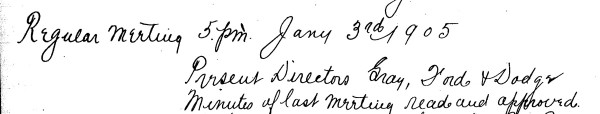 Regular Meeting 5 p.m. Jany 3rd, 1905
Present Directors Gray, Ford & Dodge
Minutes of last meeting read and approved.